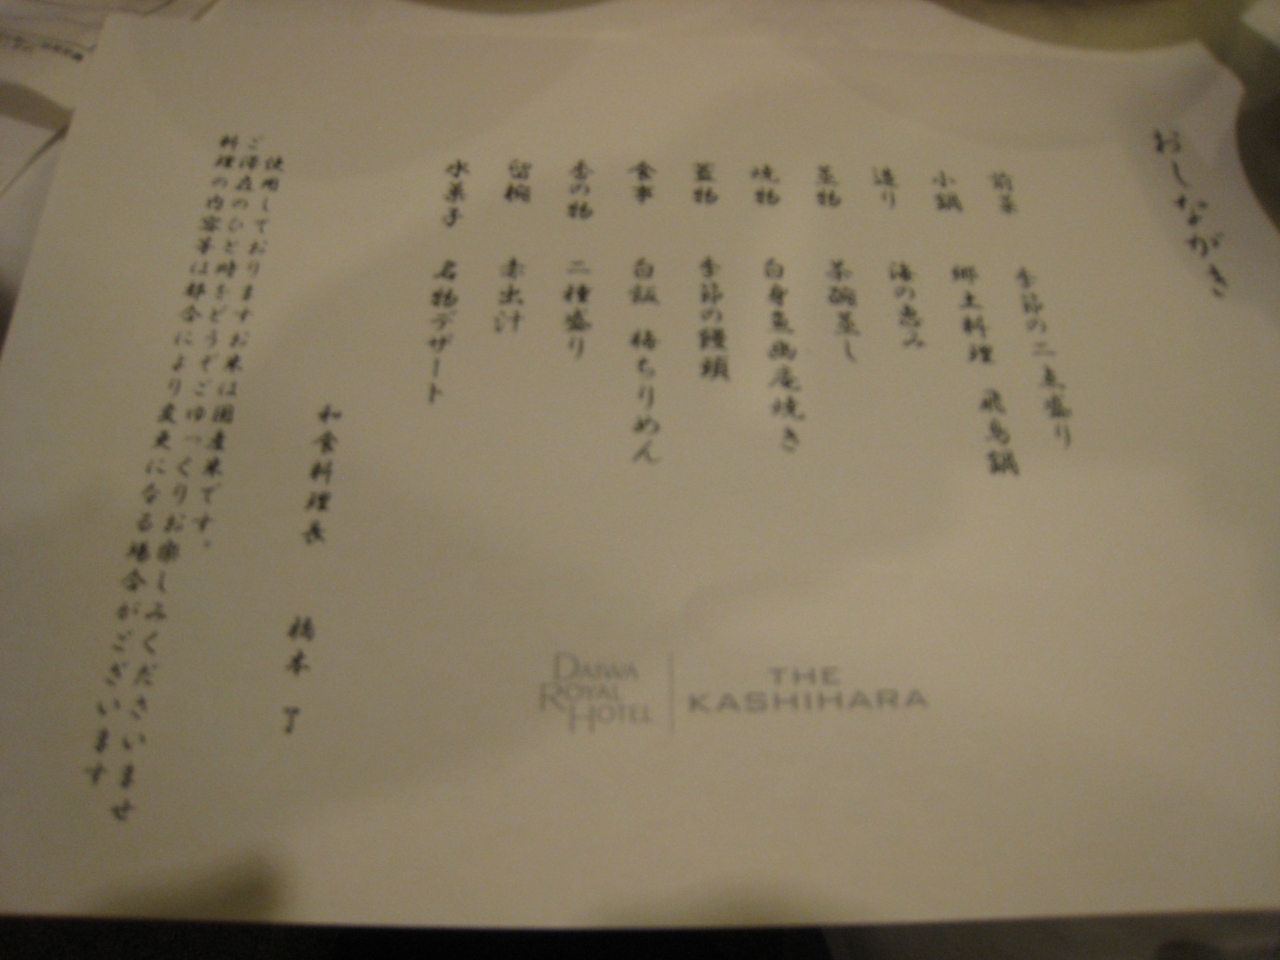 おしながき
前菜 季節の二点盛り
小鍋 郷土料理 飛鳥鍋
造り 海の恵み
蒸物 茶碗蒸し
焼物 白身魚幽庵焼き
蓋物 季節の饅頭
食事 白飯 梅ちりめん
香の物 二種盛り
留椀 赤出汁
水菓子 名物デザート
和食料理長 橋本 了
使用しておりますお米は国産米です。
ご滞在のひと時をどうぞごゆっくりお楽しみくださいませ
料理の内容等は都合により変更になる場合がございます
DAIWA
ROYAL
HOTEL
THE
KASHIHARA